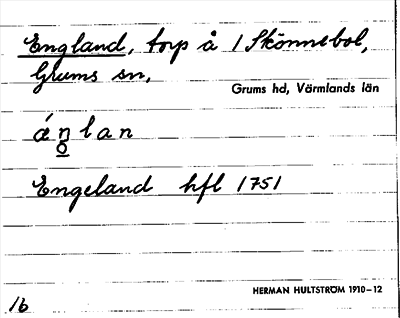 England, torp å 1 Skönnebol,
Grums sn,
Grums hd, Värmlands län
áŋlan
o
Engeland hfl 1751
HERMAN HULTSTRÖM 1910–12
16